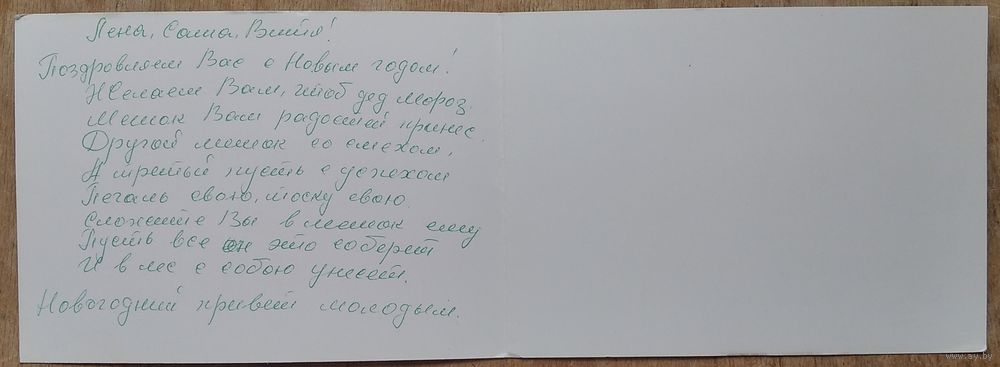 Лена, Саша, Витя!
Поздровляем Вас с Новым годом!
Желаем Вам, чтоб дед Мороз
Мешок Вам радостей принес.
Другой мешок со смехом,
А третий пусть с успехом
Печаль свою, тоску свою.
Сложите Вы в мешок ему
Пусть все он это соберет
И в лес с собою унесет.
Новогодний привет молодым.
www.ay.by